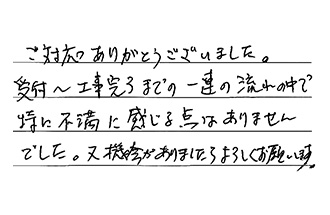 ご対応ありがとうございました。
受付〜工事完了までの一連の流れの中で
特に不満に感じる点はありません
でした。又機会がありましたらよろしくお願いします。